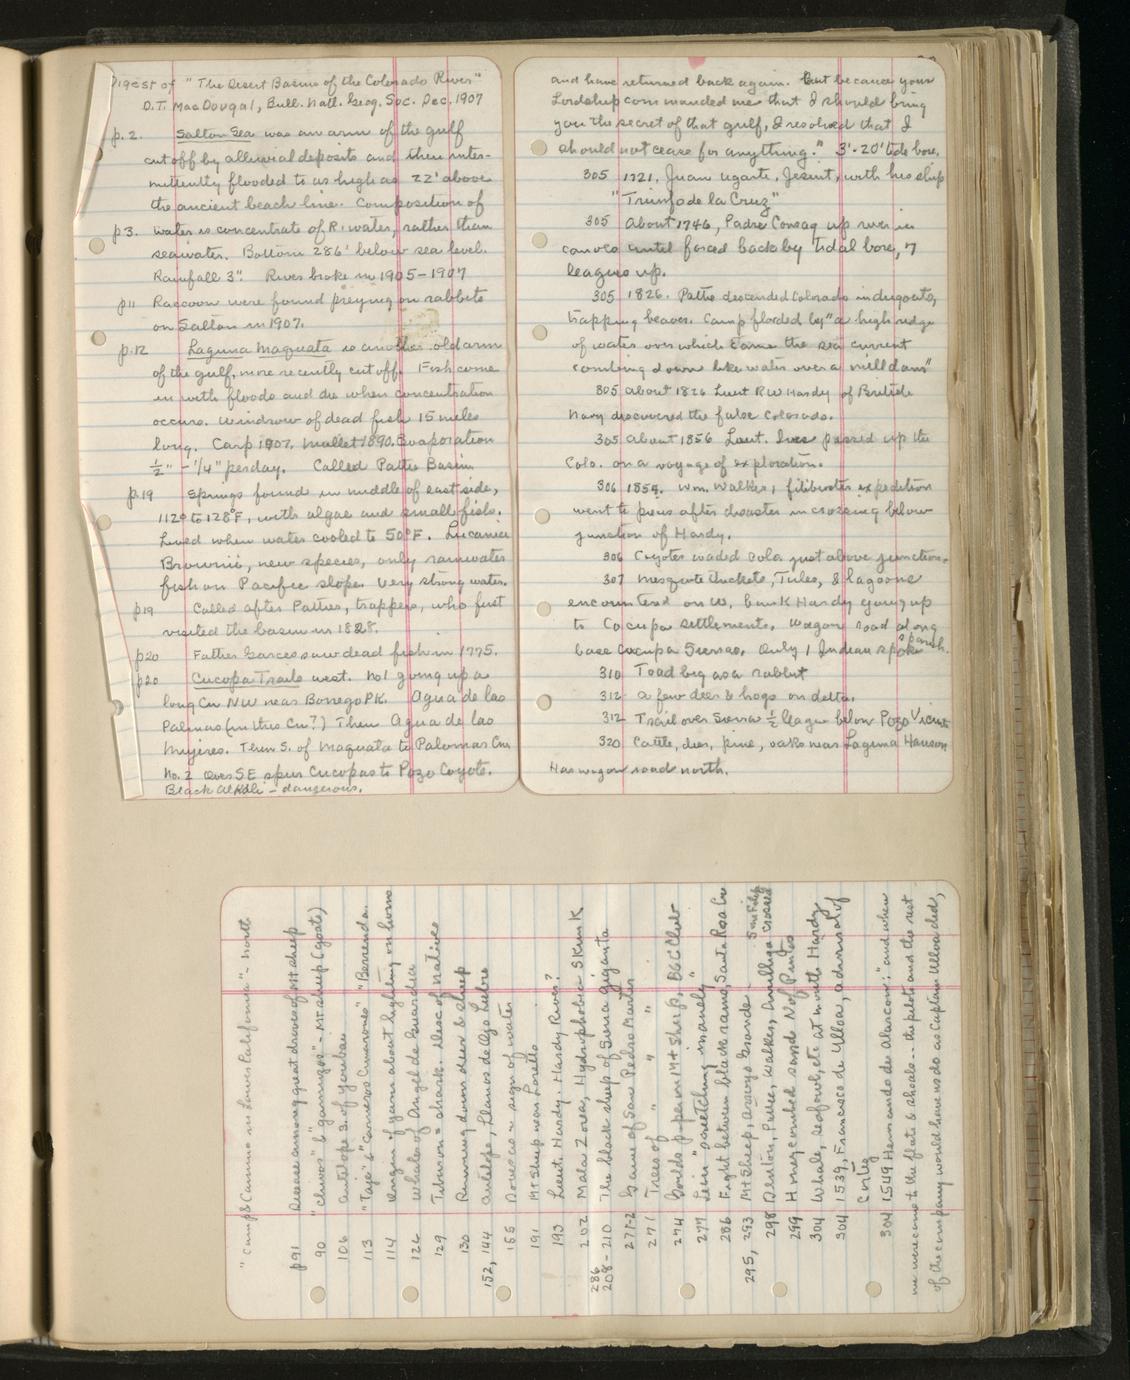 Digest of "The Desert Basins of the Colorado River"
D.T. MacDougal, Bull. Natl. Geog. Soc. Dec. 1907
p. 2. Salton Sea was an arm of the gulf
cut off by alluvial deposits and then inter-
mittently flooded to as high as 22' above
the ancient beach line. Composition of
p3. water is concentrate of R. water, rather than
seawater. Bottom 286' below sea level.
Rainfall 3". River broke in 1905-1907
p11 Raccoon were found preying on rabbits
on Salton in 1907.
p.12 Laguna Maquata is another old arm
of the gulf, more recently cut off. Fish come
in with floods and die when concentration
occurs. Windrow of dead fish 15 miles
long. Carp 1907. Mullet 1890. Evaporation
½" - ¼" per day. Called Pattie Basin
p.19 Springs found in middle of east side,
112° to 128°F, with algae and small fish.
Lived when water cooled to 50°F. Lucania
Brownii, new species, only rainwater
fish on Pacific slope. Very strong water.
p19 Called after Patties, trappers, who first
visited the basin in 1828.
p20 Father Garces saw dead fish in 1775.
p20 Cucopa Trails west. No1 going up a
long Cn NW near Borrego PK. Agua de las
Palmas (in this Cn?) Then Agua de las
Mujeres. Then S. of Maquata to Palomas Cn.
No. 2 Over S.E spur Cucopas to Pozo Coyote.
Black Alkali - dangerous.
and have returned back again. But because your
Lordship commanded me that I should bring
you the secret of that gulf, I resolved that I
should not cease for anything." 3'-20' tide bore.
305 1721. Juan Ugarte, Jesuit, with his ship
"Triunfo de la Cruz"
305 About 1746, Padre Consag up river in
canoes until forced back by tidal bore, 7
leagues up.
305 1826. Pattie descended Colorado in dugouts,
trapping beaver. Camp flooded by "a high ridge
of water over which came the sea current
combing down like water over a mill dam"
305 about 1826 Lieut RW Hardy of British
Navy discovered the false Colorado.
305 about 1856 Lieut. Ives passed up the
Colo. on a voyage of exploration.
306 1854. Wm. Walker, filibuster expedition
went to pieces after disaster in crossing below
junction of Hardy.
306 Coyotes waded Colo just above junction.
307 Mesquite thickets, Tules, & lagoons
encountered on W. bank Hardy going up
to Cocupa settlements. Wagon road along
base Cucupa Sierras. Only 1 Indian spoke Spanish.
310 Toad big as a rabbit
312 a few deer & hogs on delta.
312 Trail over Sierra ½ league below Pozo Vicente
320 Cattle, deer, pine, oaks near Laguna Hanson
Has wagon road north.
"Camp & Camino in Lower California" - North
p91 Disease among great droves of Mt sheep
90 "Chivos" & "garringos" - Mt sheep (goats)
106 Antelope S. of Yerubas
113 "Taje" & "Carneros Cimarones" "Berrenda.
114 Origin of yarn about lighting on horns
126 Whales of Angel de Guardia
129 Tiburon = shark. Desc of natives
130 Running down deer & sheep
152, 144 Antelope, Llanos de Ojo Liebre
155 Doves as a sign of water
191 Mt Sheep near Loretto
193 Lieut. Hardy. Hardy River?
202 Mala Zorea, Hydrophobia Skunk
286
208-210 The black sheep of Sierra Giganta
271-2 Game of San Pedro Martir
271 Trees of " " "
274 Goulds p-permMt sheep, B&C Club
277 Lion "scretching manely"
286 Fight between black rams, Santa Rosa Cn
295, 293 Mt Sheep, Arroyo Grande San Felip
298 Denton, Pattie, Walker, Amilliga crossed
299 Honeycombed sands N of Pintos
304 Whale, seafowl, etc at mouth Hardy
304 1539. Francisco de Ulloa, admiral of
Cortés
304 1549 Hernando de Alarcon: "and when
we were come to the flats & shoals... the pilots and the rest
of the company would have us do as Captain Ulloa did,